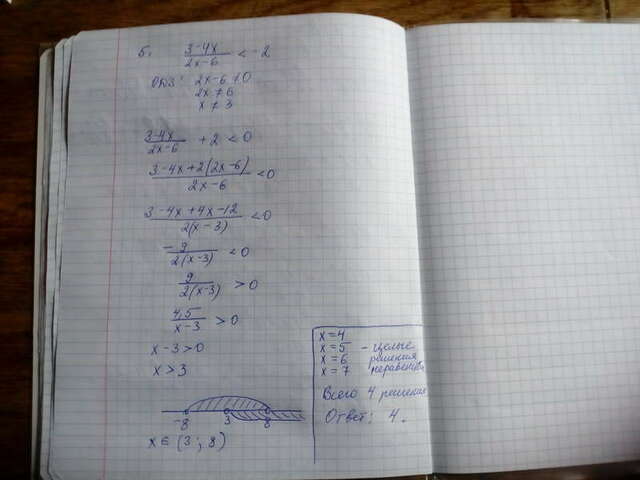 5. (3-4x)/(2x-6) < -2
ОДЗ: 2x-6≠0
2x≠6
x≠3
(3-4x)/(2x-6) + 2 < 0
(3-4x+2(2x-6))/(2x-6) < 0
(3-4x+4x-12)/(2(x-3)) < 0
-9/(2(x-3)) < 0
9/(2(x-3)) > 0
4,5/(x-3) > 0
x-3>0
x>3
-8 3 8
x ∈ (3; 8)
x=4
x=5 - целые
x=6 решения
x=7 неравенства
Всего 4 решения
Ответ: 4.